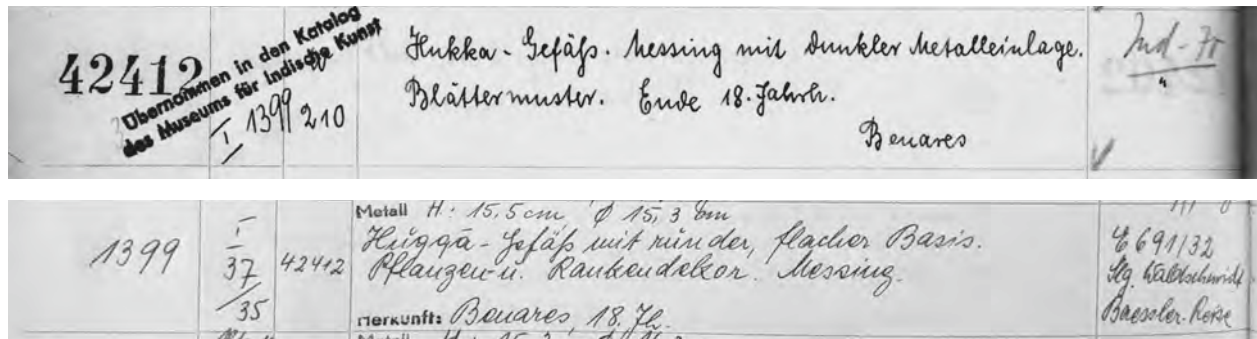 42412
Übernommen in den Katalog
des Museums für Indische Kunst
I 1399
210
Hukka-Gefäß. Messing mit dunkler Metalleinlage.
Blättermuster. Ende 18. Jahrh.
Benares
Ind-
"
1399
I
37
35
42412
Metall H: 15,5 cm, Ø 15,3 cm
Huqqā-Gefäß mit runder, flacher Basis.
Pflanzen u. Rankendekor. Messing.
Herkunft: Benares, 18. Jh.
E 691/32
Slg. Waldschmidt
Baessler-Reise